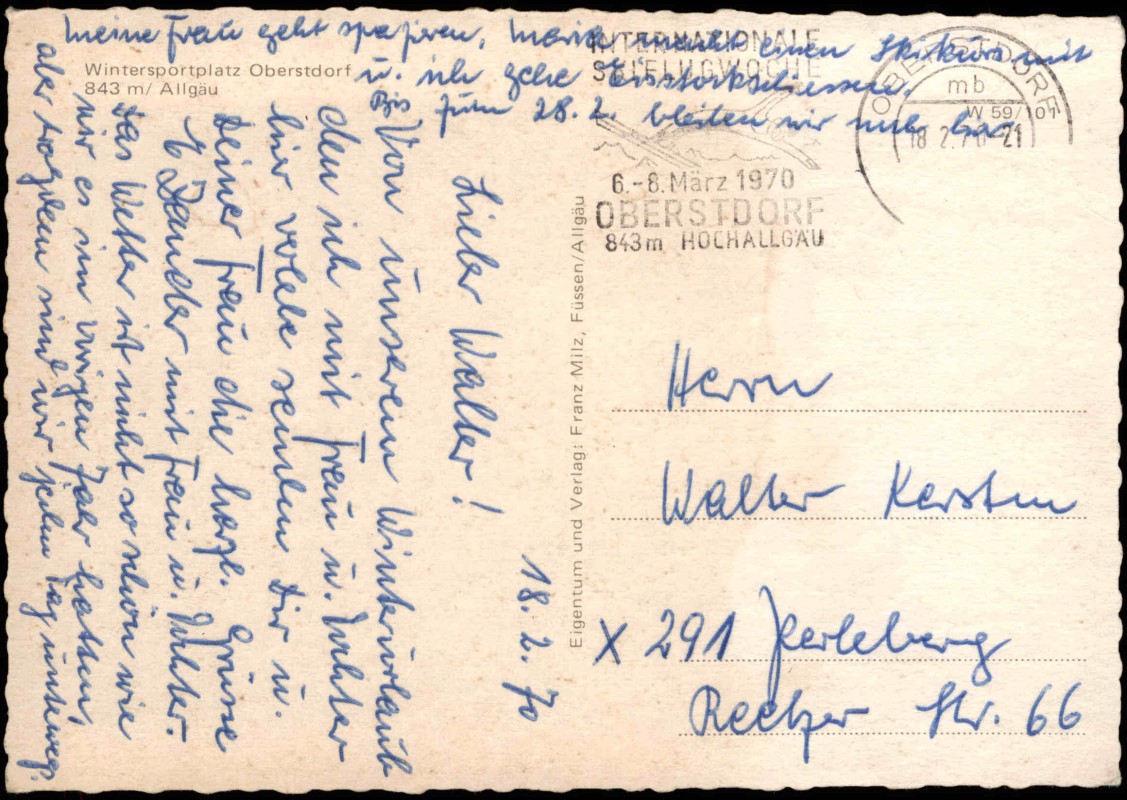 Wintersportplatz Oberstdorf
843 m/ Allgäu
18. 2. 70
Lieber Walter!
Von unserem Winterurlaub
den ich mit Frau u. Tochter
hier verlebe senden Dir u.
Deiner Frau die herzl. Grüsse
mit Frau u. Tochter.
Das Wetter ist nicht so schön wie
wir es im vorigen Jahr hatten,
aber trotzdem sind wir jeden Tag unterwegs.
Meine Frau geht spazieren, macht einen Skikurs mit
u. ich gehe Eisstockschiessen.
Bis zum 28.2. bleiben wir noch hier.
Eigentum und Verlag: Franz Milz, Füssen/Allgäu
INTERNATIONALE
SKIFLUGWOCHE
6.-8. März 1970
OBERSTDORF
843m HOCHALLGÄU
OBERSTDORF
mb
W 59/107
18 2.70-21
Herrn
Walter Kersten
X 291 Perleberg
Reetzer Str. 66